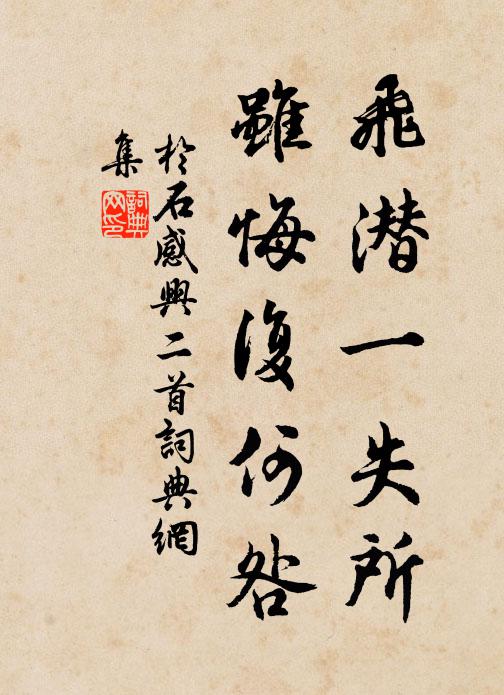 飛潛一失所
雖悔復何咎
於石感興二首詞典網
集
詞典
网印